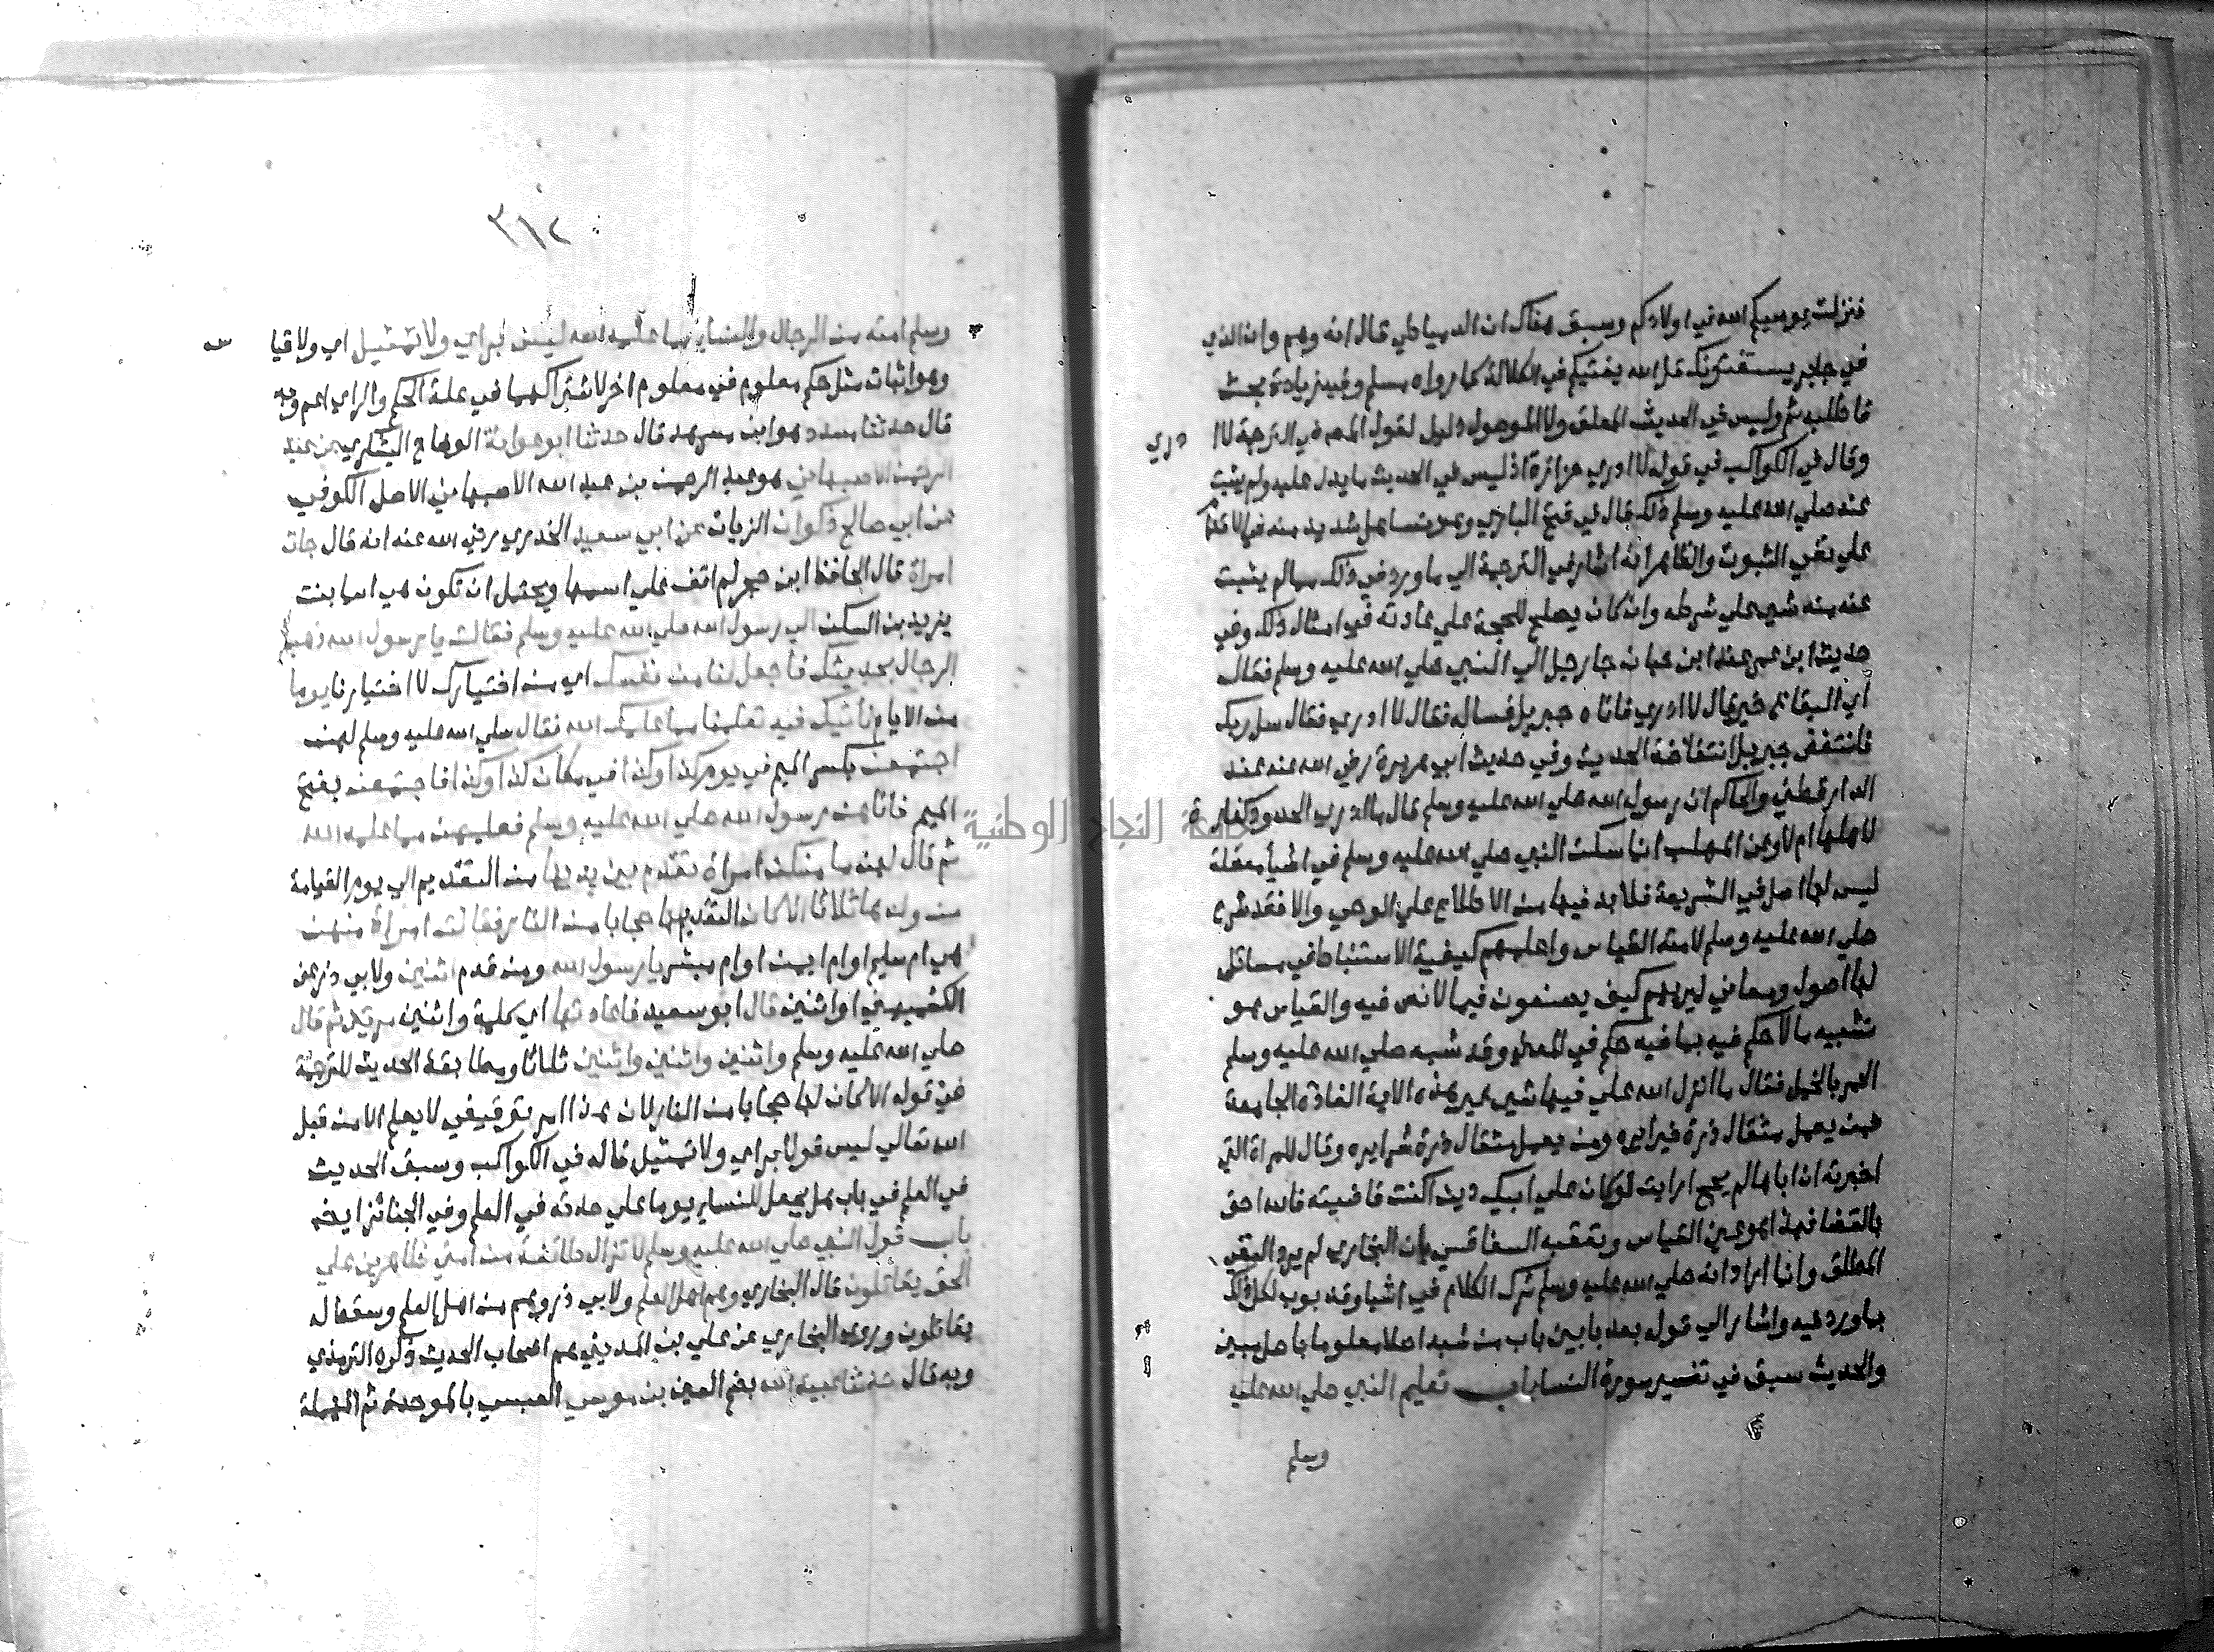 فنزلت يوصيكم الله في اولادكم وسبق هناك ان الدمياطي قال انه وهم وان الذي
في جابر يستفتونك قل الله يفتيكم في الكلالة كما رواه مسلم وفيه زيادة بحث
فاطلبه ثم وليس في الحديث المعلق ولا الموصول دليل لقول المص في الترجمة لا ا دري
وقال في الكواكب في قوله لا ادري حزازة اذ ليس في الحديث ما يدل عليه ولم يثبت
عنه صلي الله عليه وسلم ذلك قال في فتح الباري وهو تساهل شديد منه في الاقدام
علي نفي الثبوت والظاهر انه اشار في الترجمة الي ما ورد في ذلك مما لم يثبت
عنه منه شي علي شرطه وان كان يصلح للحجة علي عادته في امثال ذلك وفي
حديث ابن عمر عند ابن حبان جا رجل الي النبي صلي الله عليه وسلم فقال
اي البقاع خير قال لا ادري فاتاه جبريل فساله فقال لا ادري فقال سل ربك
فانتفض جبريل انتفاضة الحديث وفي حديث ابي هريرة رضي الله عنه عند
الدارقطني والحاكم ان رسول الله صلي الله عليه وسلم قال ما ادري الحدود كفارة
لاهلها ام لا وعن المهلب انما سكت النبي صلي الله عليه وسلم في اشيا معضلة
ليس لها اصل في الشريعة فلا بد فيها من الاطلاع علي الوحي والا فقد شرع
صلي الله عليه وسلم لامته القياس واعلمهم كيفية الاستنباط في مسائل
لها اصول ومعاني ليريهم كيف يصنعون فيما لا نص فيه والقياس هو
تشبيه مالا حكم فيه بما فيه حكم في المعني وقد شبه صلي الله عليه وسلم
الحمر بالخيل فقال ما انزل الله علي فيها شي غير هذه الاية الفاذة الجامعة
فمن يعمل مثقال ذرة خيرا يره ومن يعمل مثقال ذرة شرا يره وقال للمراة التي
اخبرته ان اباها لم يحج ارايت لو كان علي ابيك دين اكنت قاضيته فالله احق
بالقضا فهذا هو عين القياس وتعقبه السفاقسي بان البخاري لم يرد النفي
المطلق وانما اراد انه صلي الله عليه وسلم ترك الكلام في اشيا وقد بوب لكل ذلك
بما ورد فيه واشار الي قوله بعد بابين باب من شبه اصلا معلوما باصل مبين
والحديث سبق في تفسير سورة النسا باب تعليم النبي صلي الله عليه
وسلم
٣١٢
وسلم امته من الرجال والنسا مما علمه الله ليس براي ولا تمثيل اي ولا قيا س
وهو اثبات مثل حكم معلوم في معلوم اخر لاشتراكهما في علة الحكم والراي اعم وبه
قال حدثنا مسدد هو ابن مسرهد قال حدثنا ابو عوانة الوضاح اليشكري عن عبد
الرحمن الاصبهاني هو عبد الرحمن بن عبد الله الاصبهاني الاصل الكوفي
عن ابي صالح ذكوان الزيات عن ابي سعيد الخدري رضي الله عنه انه قال جات
امراة قال الحافظ ابن حجر لم اقف علي اسمها ويحتمل ان تكون هي اسما بنت
يزيد بن السكن الي رسول الله صلي الله عليه وسلم فقالت يا رسول الله ذهب
الرجال بحديثك فاجعل لنا من نفسك اي من اختيارك لا اختيارنا يوما
من الايام ناتيك فيه تعلمنا مما علمك الله فقال صلي الله عليه وسلم لهن
اجتمعن بكسر الميم في يوم كذا وكذا في مكان كذا وكذا فاجتمعن بفتح
الميم فاتاهن رسول الله صلي الله عليه وسلم فعلمهن مما علمه الله
ثم قال لهن ما منكن امراة تقدم بين يديها من التقديم الي يوم القيامة
من ولدها ثلاثا الا كان التقديم لها حجابا من النار فقالت امراة منهن
هي ام سليم او ام ايمن او ام مبشر يا رسول الله ومن قدم اثنين ولابي ذر عن
الكشميهني او اثنين قال ابو سعيد فاعادتها اي كلمة واثنين مرتين ثم قال
صلي الله عليه وسلم واثنين واثنين واثنين ثلاثا ومطابقة الحديث للترجمة
في قوله الا كان لها حجابا من النار لان هذا امر توقيفي لا يعلم الا من قبل
الله تعالي ليس قولا براي ولا تمثيل قاله في الكواكب وسبق الحديث
في العلم في باب هل يجعل للنسا يوما علي حدته في العلم وفي الجنائز ايضه
باب قول النبي صلي الله عليه وسلم لا تزال طائفة من امتي ظاهرين علي
الحق يقاتلون قال البخاري وهم اهل العلم ولابي ذر وهم من اهل العلم وسقط له
يقاتلون وروي البخاري عن علي بن المديني هم اصحاب الحديث ذكره الترمذي
وبه قال حدثنا عبيد الله بضم العين بن موسي العبسي بالموحدة ثم المهملة
جامعة النجاح الوطنية